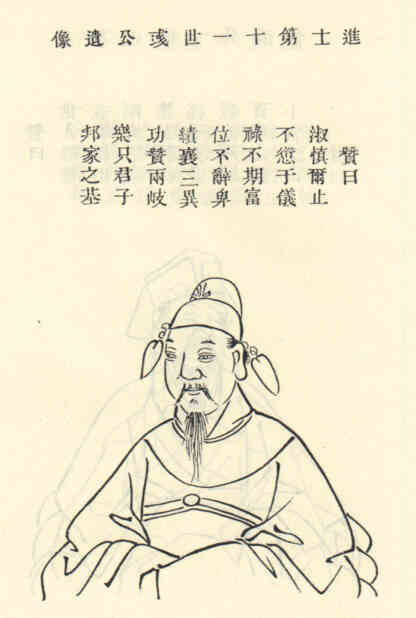 進士第十一世彧公遺像
贊曰
淑慎爾止
不愆于儀
祿不期富
位不辭卑
績襄三異
功贊兩岐
樂只君子
邦家之基